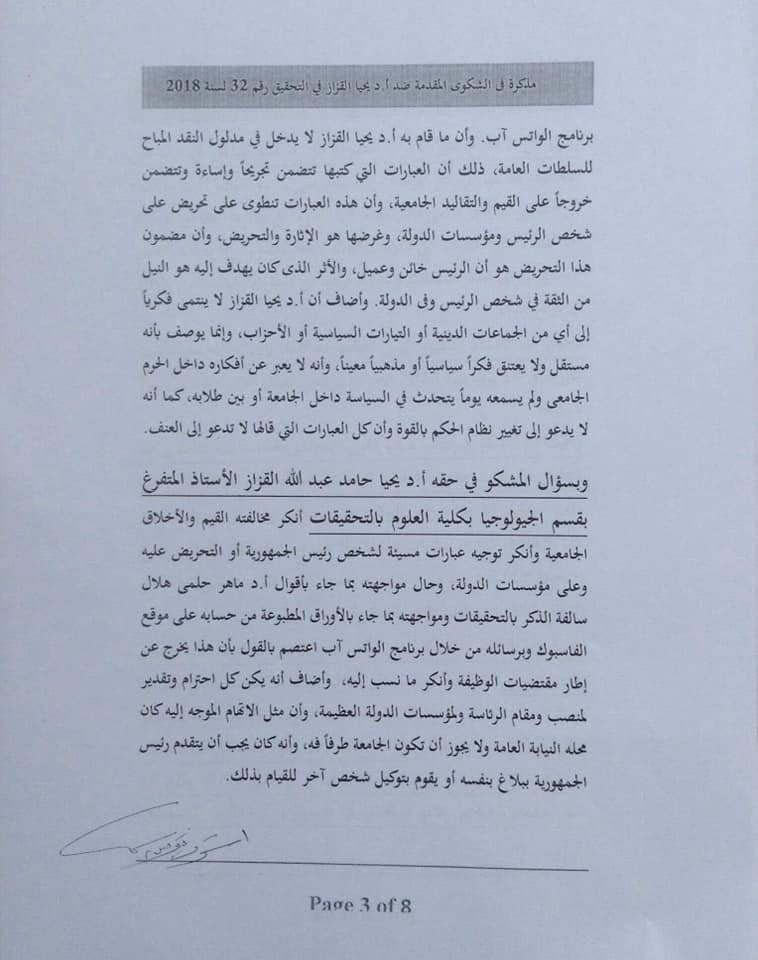 مذكرة فى الشكوى المقدمة ضد أ.د يحيا القزاز في التحقيق رقم 32 لسنة 2018
برنامج الواتس آب. وأن ما قام به أ.د يحيا القزاز لا يدخل في مدلول النقد المباح
للسلطات العامة، ذلك أن العبارات التي كتبها تتضمن تجريحاً وإساءة وتتضمن
خروجاً على القيم والتقاليد الجامعية، وأن هذه العبارات تنطوى على تحريض على
شخص الرئيس ومؤسسات الدولة، وغرضها هو الإثارة والتحريض، وأن مضمون
هذا التحريض هو أن الرئيس خائن وعميل، والأثر الذى كان يهدف إليه هو النيل
من الثقة في شخص الرئيس وفى الدولة. وأضاف أن أ.د يحيا القزاز لا ينتمى فكرياً
إلى أي من الجماعات الدينية أو التيارات السياسية أو الأحزاب، وإنما يوصف بأنه
مستقل ولا يعتنق فكراً سياسياً أو مذهبياً معيناً، وأنه لا يعبر عن أفكاره داخل الحرم
الجامعى ولم يسمعه يوماً يتحدث في السياسة داخل الجامعة أو بين طلابه، كما أنه
لا يدعو إلى تغيير نظام الحكم بالقوة وأن كل العبارات التي قالها لا تدعو إلى العنف.
وبسؤال المشكو في حقه أ.د يحيا حامد عبد الله القزاز الأستاذ المتفرغ
بقسم الجيولوجيا بكلية العلوم بالتحقيقات أنكر مخالفته القيم والأخلاق
الجامعية وأنكر توجيه عبارات مسيئة لشخص رئيس الجمهورية أو التحريض عليه
وعلى مؤسسات الدولة، وحال مواجهته بما جاء بأقوال أ.د ماهر حلمى هلال
سالفة الذكر بالتحقيقات ومواجهته بما جاء بالأوراق المطبوعة من حسابه على موقع
الفاسبوك وبرسائله من خلال برنامج الواتس آب اعتصم بالقول بأن هذا يخرج عن
إطار مقتضيات الوظيفة وأنكر ما نسب إليه، وأضاف أنه يكن كل احترام وتقدير
لمنصب ومقام الرئاسة ولمؤسسات الدولة العظيمة، وأن مثل الاتهام الموجه إليه كان
محله النيابة العامة ولا يجوز أن تكون الجامعة طرفاً فه، وأنه كان يجب أن يتقدم رئيس
الجمهورية ببلاغ بنفسه أو يقوم بتوكيل شخص آخر للقيام بذلك.
Page 3 of 8